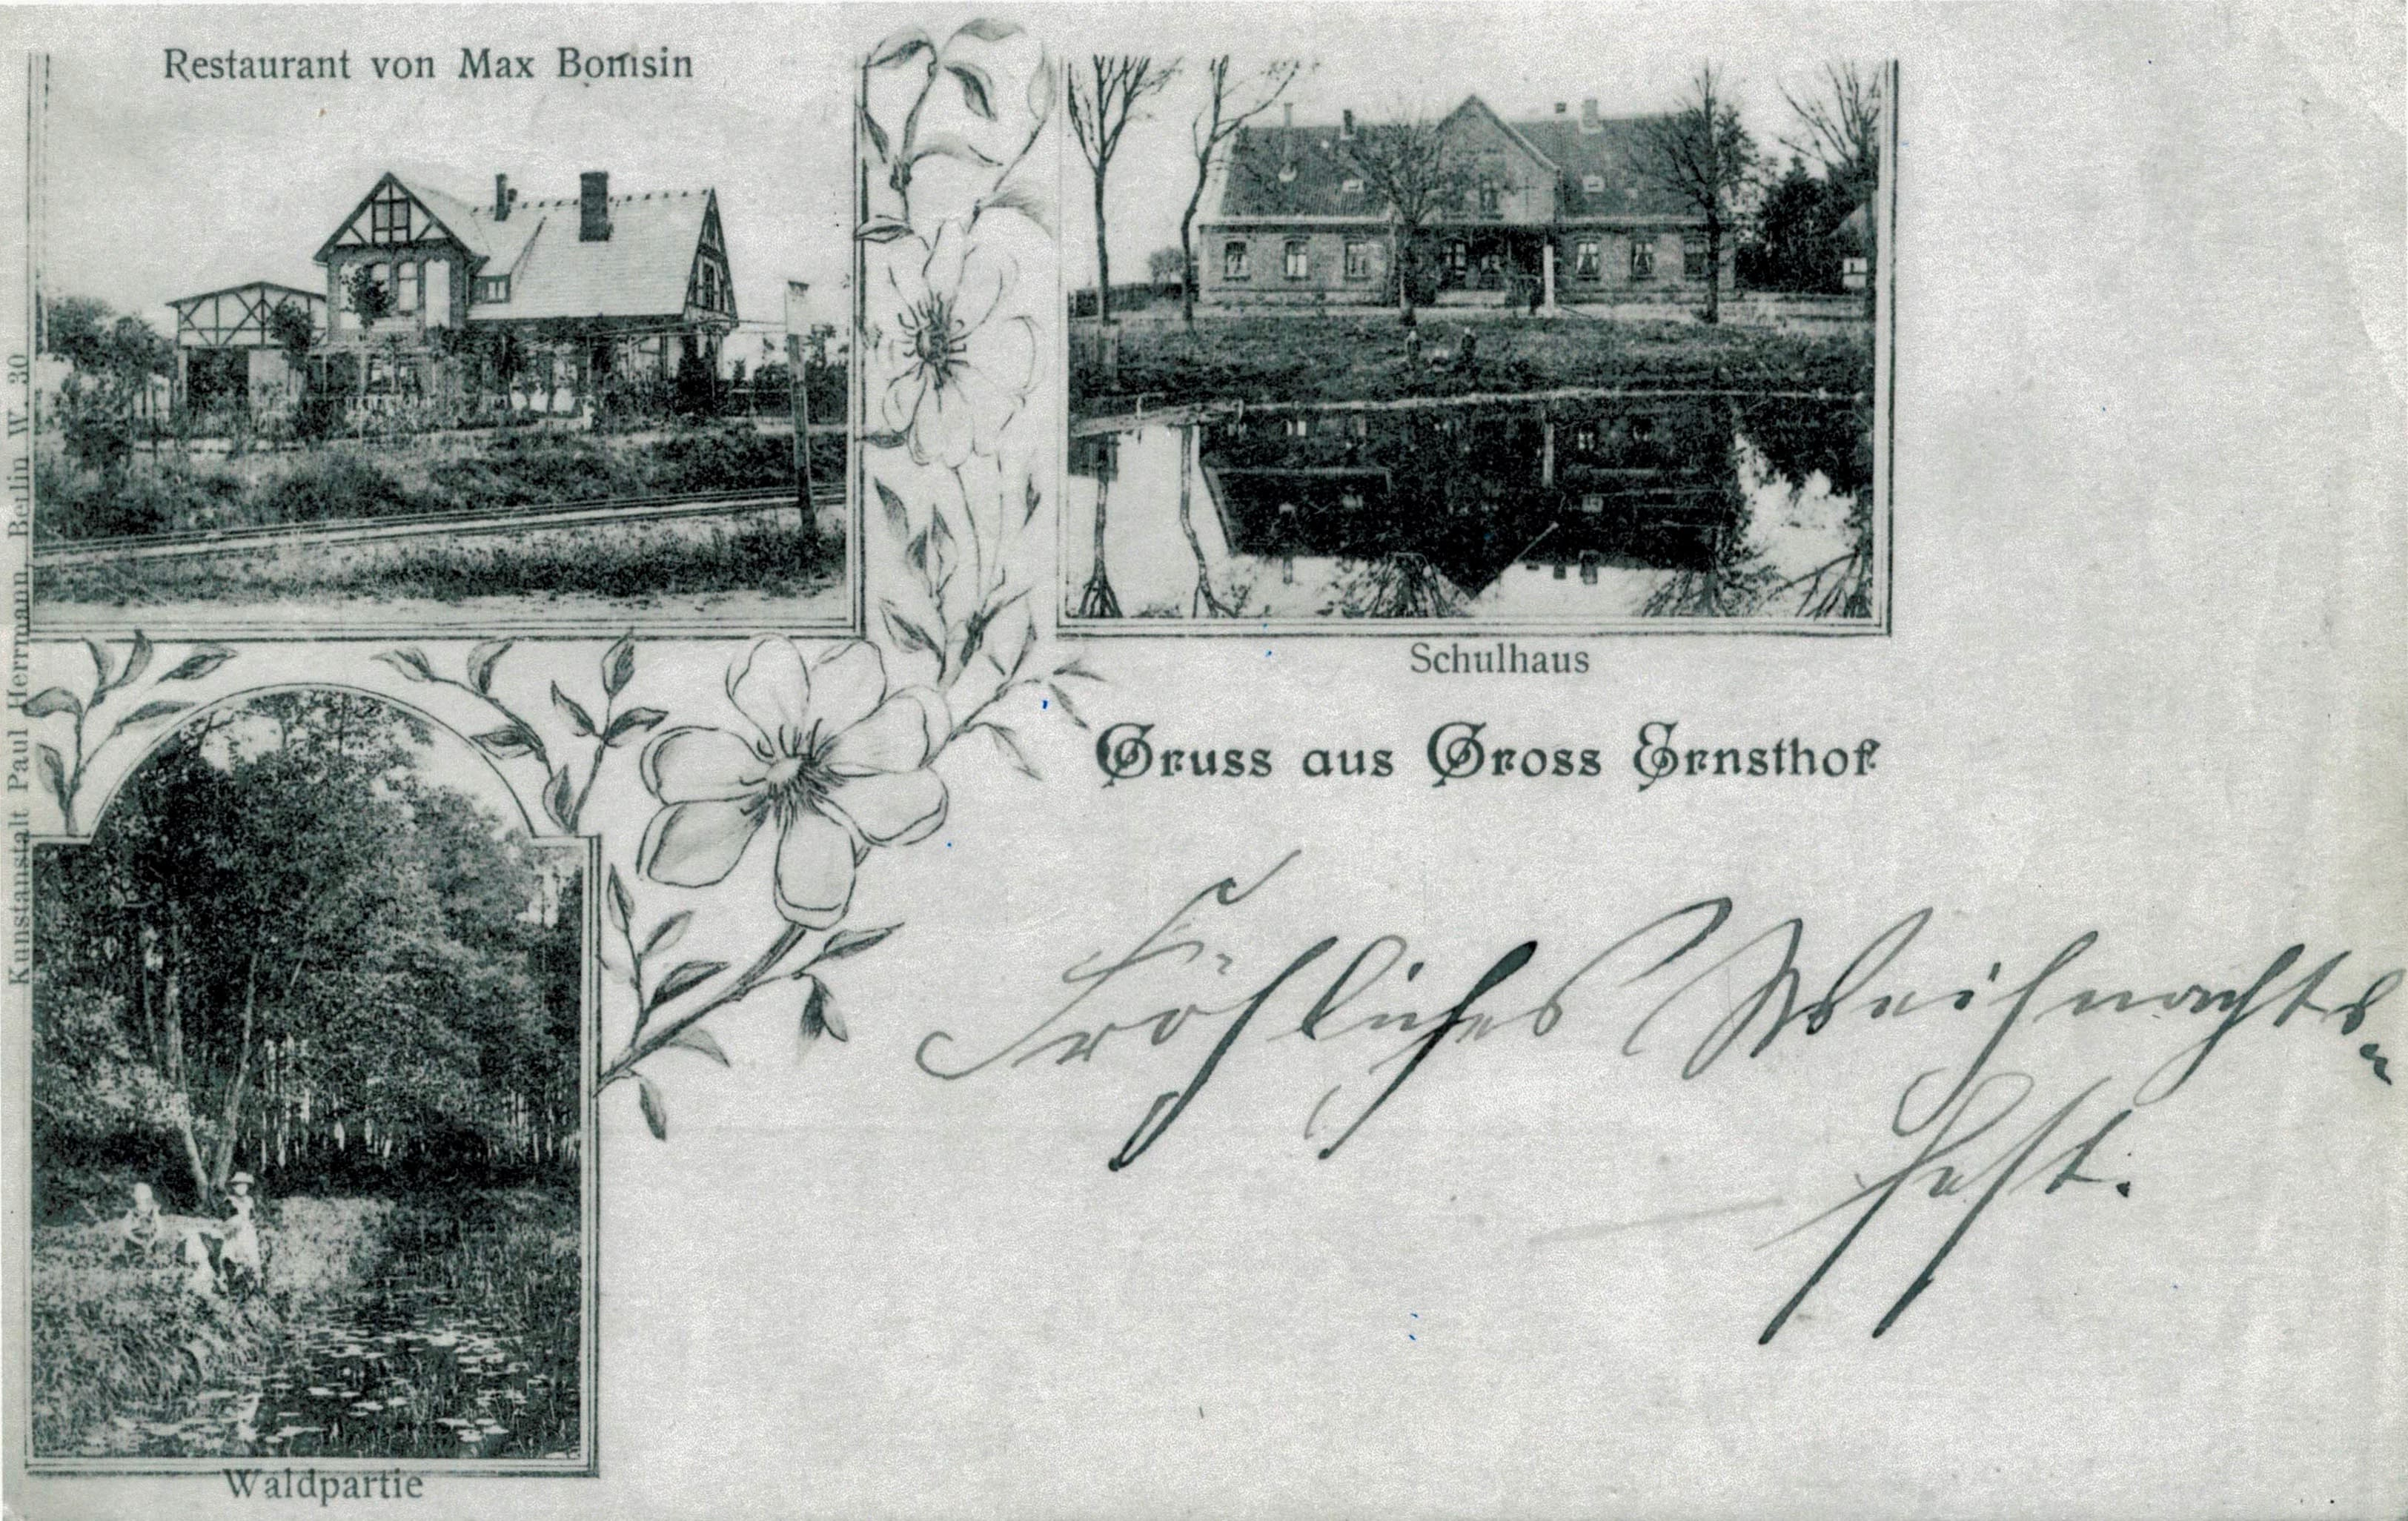 Restaurant von Max Bomsin
Schulhaus
Gruss aus Gross Ernsthof
Fröhliches Weihnachts-
fest.
Waldpartie
Kunstanstalt Paul Herrmann, Berlin W. 30